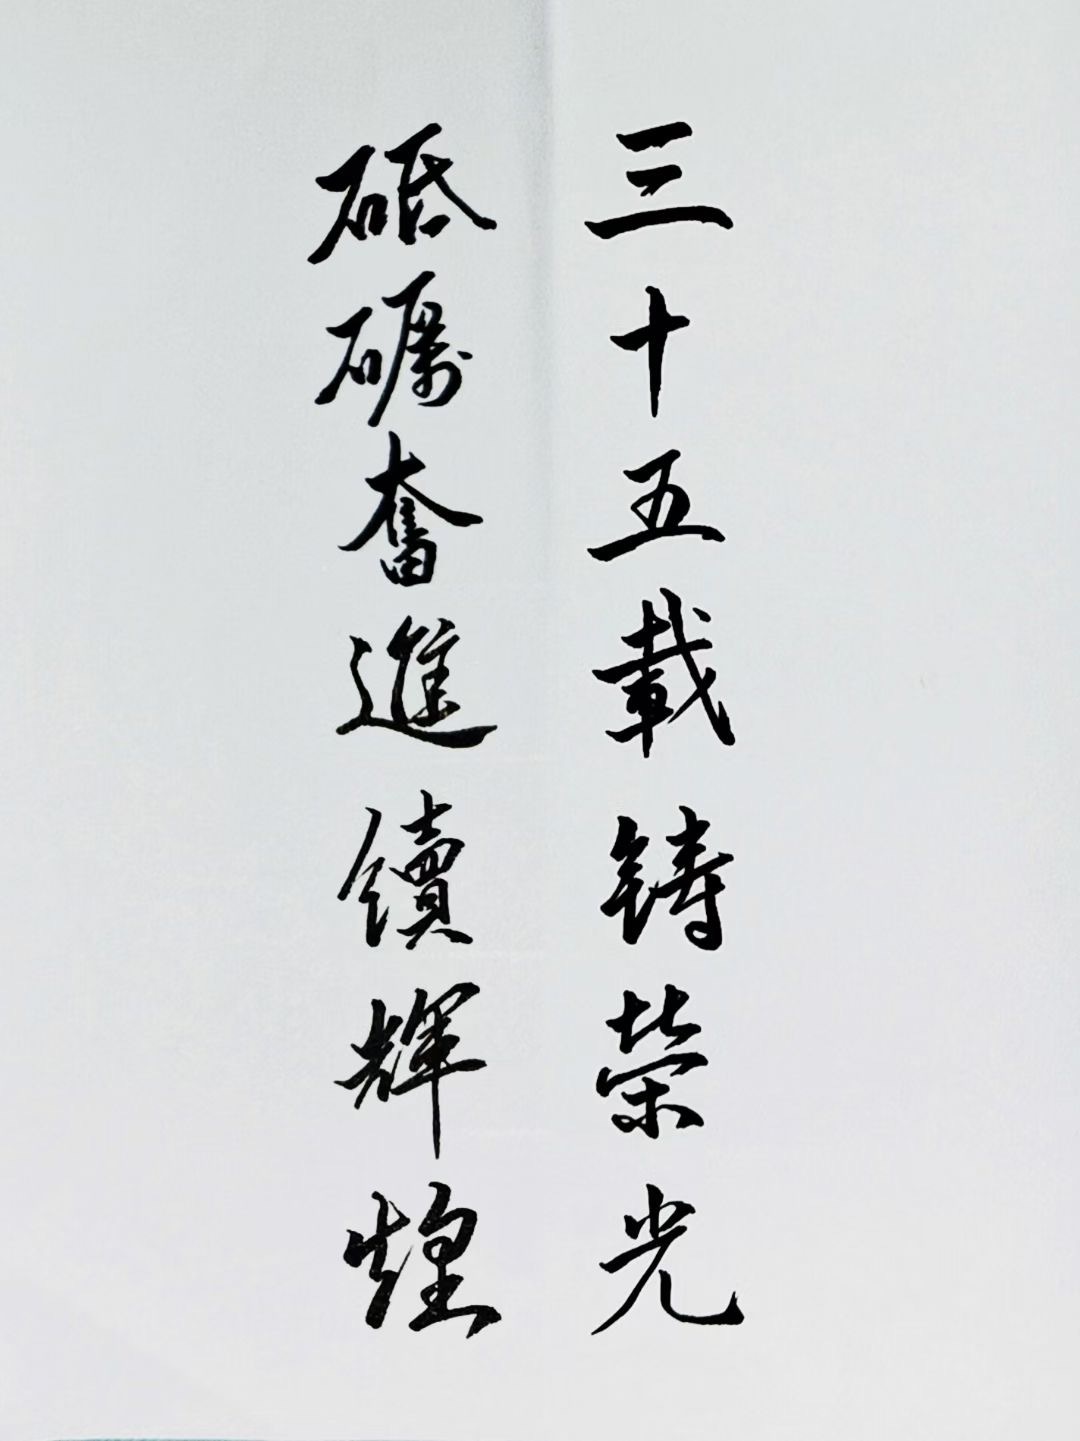 三十五載铸荣光
砥礪奮進續輝煌